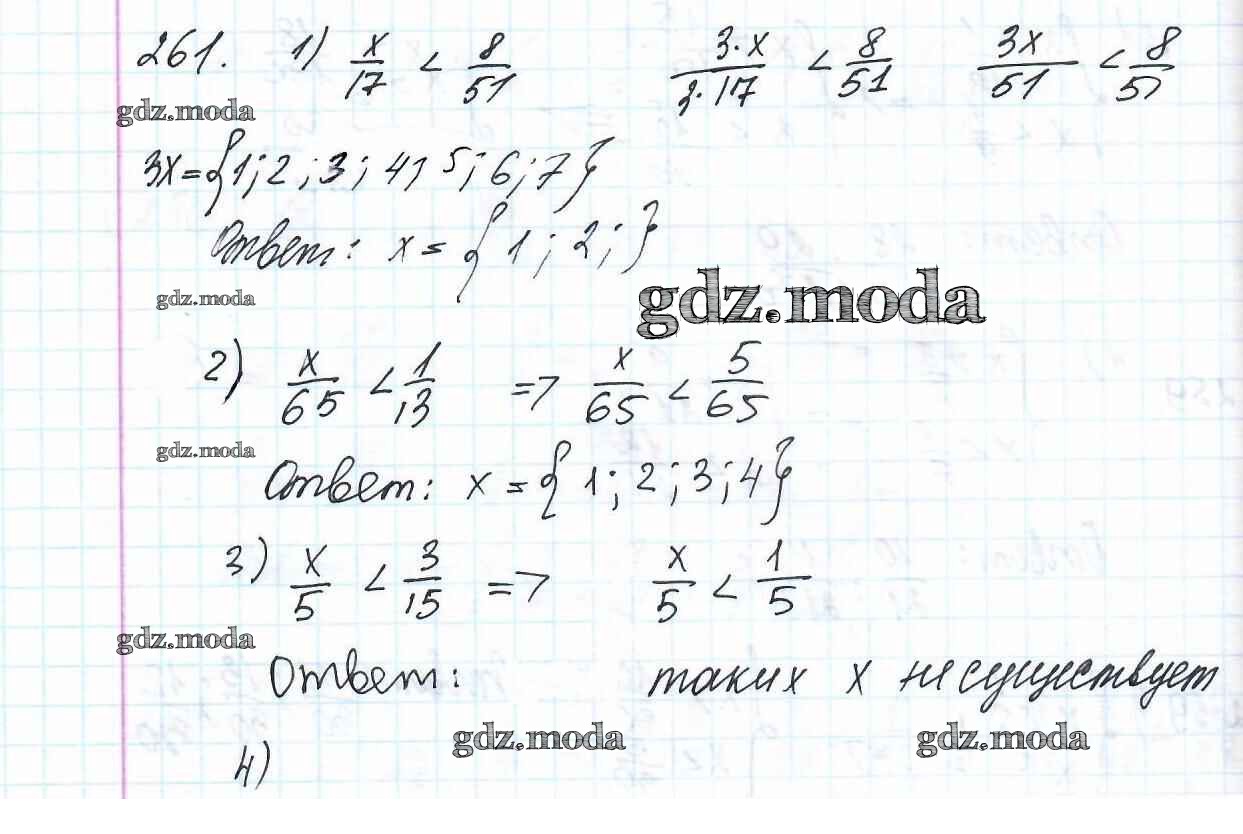 261. 1) x/17 < 8/51 3·x/3·17 < 8/51 3x/51 < 8/51
gdz.moda
3x = {1; 2; 3; 4; 5; 6; 7}
Ответ: x = {1; 2;}
gdz.moda
gdz.moda
2) x/65 < 1/13 => x/65 < 5/65
gdz.moda
Ответ: x = {1; 2; 3; 4}
3) x/5 < 3/15 => x/5 < 1/5
gdz.moda
Ответ: таких x не существует
gdz.moda gdz.moda
4)